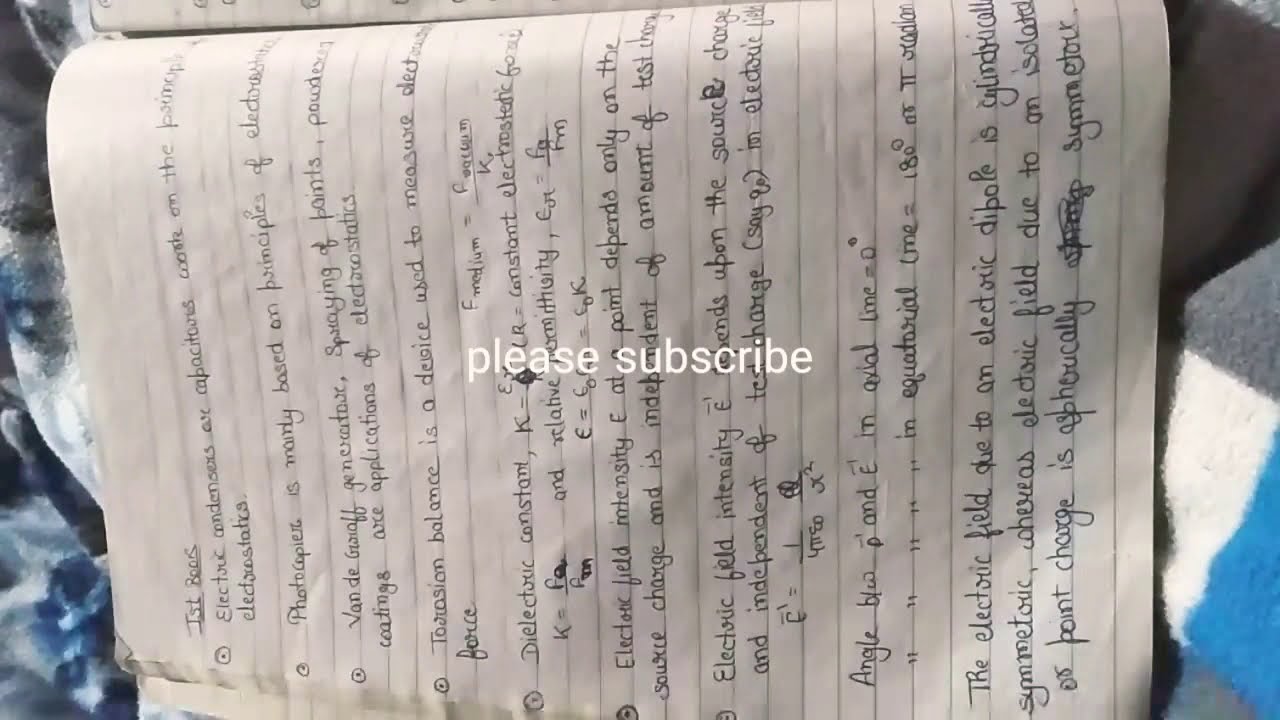 Ist Boos
Electric condensers or capacitors work on the principle
electrostatics.
Photocopier is mainly based on principles of electrostatics
Van de Graaff generator, Spraying of paints, powdered
coatings are applications of electrostatics
Torsion balance is a device used to measure electrostatic
force
F medium = Fvacuum / K
Dielectric constant, K = εr (K = constant electrostatic force)
K = Fa / Fm and relative permittivity, εr = Fa / Fm
ε = ε0 = ε0K
Electric field intensity E at a point depends only on the
source charge and is independent of amount of test charge
Electric field intensity E depends upon the source charge
and independent of test charge (say q0) in electric field
E = 1 / 4πε0 Q / r²
Angle b/w p and E in axial line = 0°
" " " " " in equatorial line = 180° or π radian
The electric field due to an electric dipole is cylindrically
symmetric, whereas electric field due to an isolated
or point charge is spherically symmetric.
please subscribe